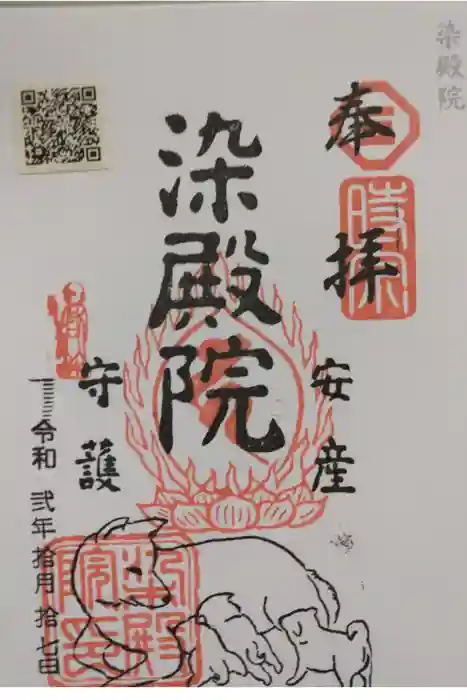 染殿院
奉拝
時宗
安産
染殿院
守護
令和 弐年拾月拾七日